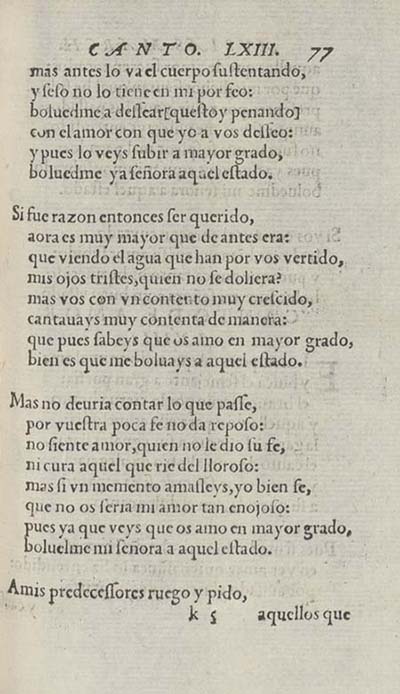 CANTO. LXIII. 77
mas antes lo va el cuerpo ſuſtentando,
y ſeſo no lo tiene en mi por feo:
boluedme a deſſear[queſtoy penando]
con el amor con que yo a vos deſſeo:
y pues lo veys ſubir a mayor grado,
boluedme ya ſeñora aquel eſtado.
Si fue razon entonces ſer querido,
aora es muy mayor que de antes era:
que viendo el agua que han por vos vertido,
mis ojos triſtes, quien no ſe doliera?
mas vos con vn contento muy creſcido,
cantauays muy contenta de manera:
que pues ſabeys que os amo en mayor grado,
bien es que me boluays a aquel eſtado.
Mas no deuria contar lo que paſſe,
por vueſtra poca fe no da repoſo:
no ſiente amor, quien no le dio ſu fe,
ni cura aquel que rie del lloroſo:
mas ſi vn memento amaſſeys, yo bien ſe,
que no os ſeria mi amor tan enojoſo:
pues ya que veys que os amo en mayor grado,
boluelme mi ſeñora a aquel eſtado.
Amis predeceſſores ruego y pido,
k 5 aquellos que